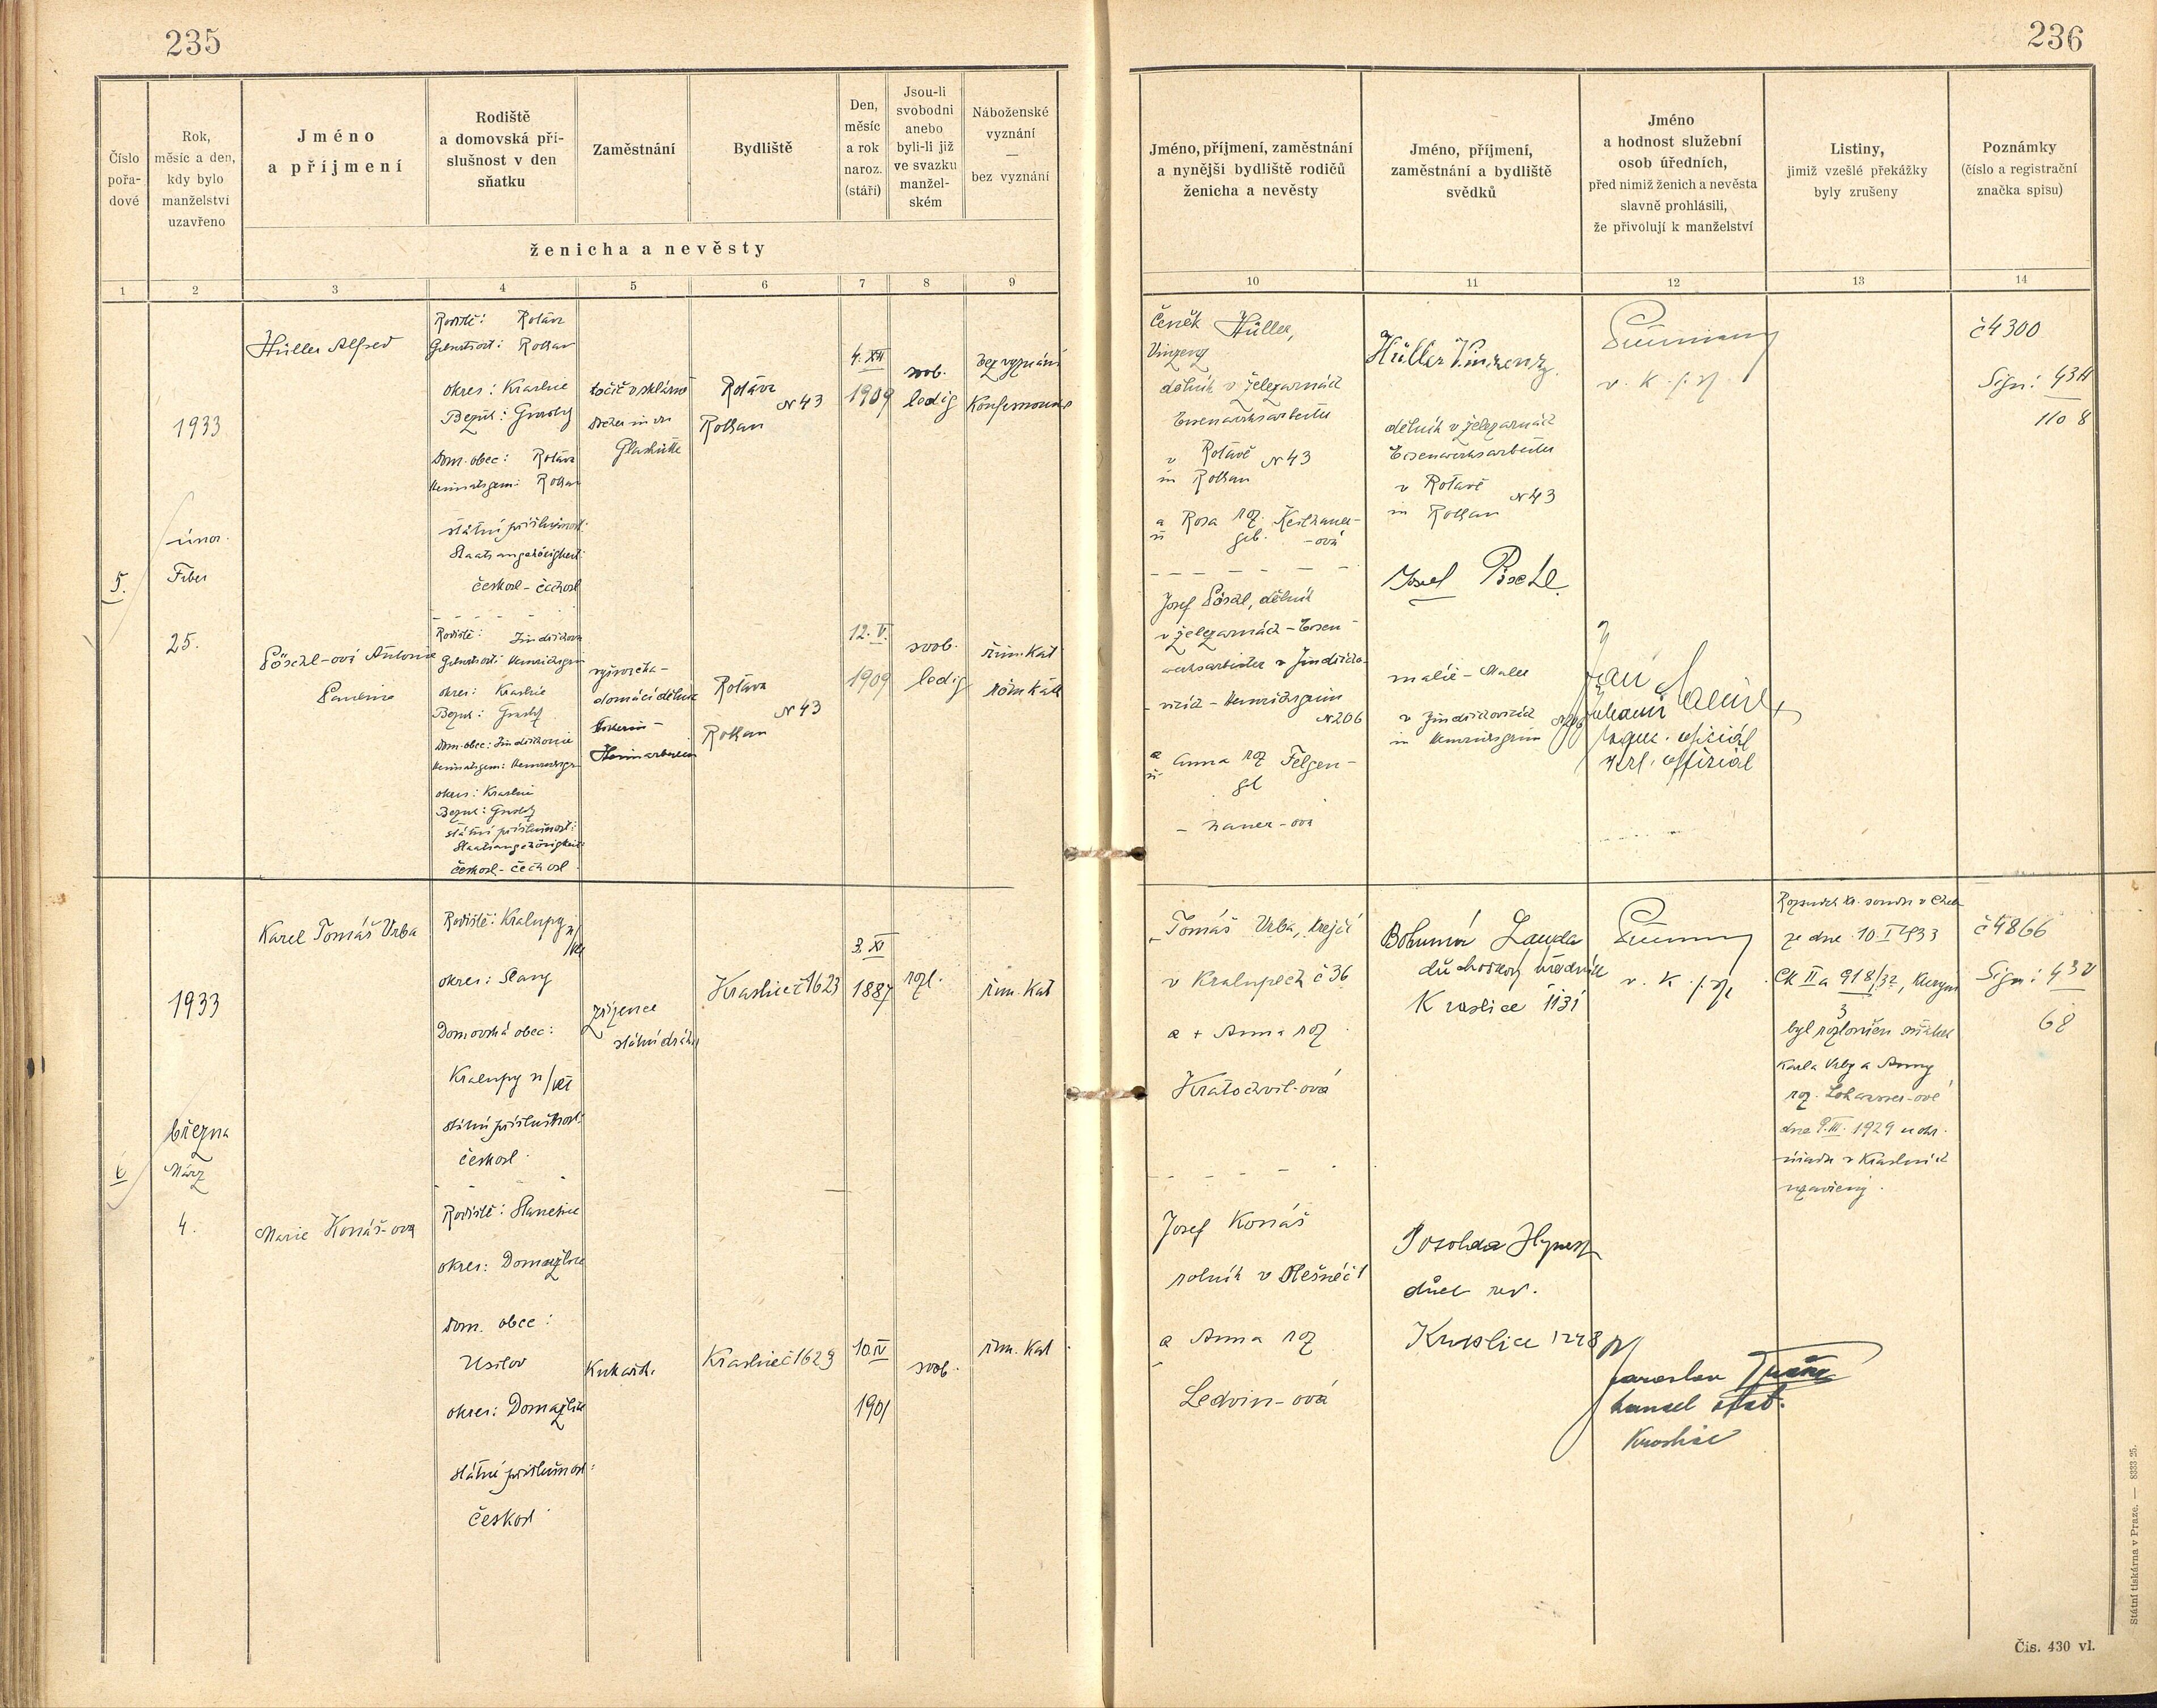 235
236
Číslo
pořa-
dové
Rok,
měsíc a den,
kdy bylo
manželství
uzavřeno
Jméno
a příjmení
Rodiště
a domovská pří-
slušnost v den
sňatku
Zaměstnání
Bydliště
Den,
měsíc
a rok
naroz.
(stáří)
Jsou-li
svobodni
anebo
byli-li již
ve svazku
manžel-
ském
Náboženské
vyznání
—
bez vyznání
ženicha a nevěsty
Jméno, příjmení, zaměstnání
a nynější bydliště rodičů
ženicha a nevěsty
Jméno, příjmení,
zaměstnání a bydliště
svědků
Jméno
a hodnost služební
osob úředních,
před nimiž ženich a nevěsta
slavně prohlásili,
že přivolují k manželství
Listiny,
jimiž vzešlé překážky
byly zrušeny
Poznámky
(číslo a registrační
značka spisu)
1 2 3 4 5 6 7 8 9 10 11 12 13 14
5.
1933
únor
Feber
25.
Hüller Alfred
Rodiště: Rotava
Geburtsort: Rothau
okres: Kraslice
Bezirk: Graslitz
Dom. obec: Rotava
Heimatsgem: Rothau
státní příslušnost:
Staatsangehörigkeit:
českosl - čechosl
točič v sklárně
Dreher in der
Glashütte
Rotava
N 43
Rothau
4. XII
1909
svob.
ledig
bez vyznání
Konfessionslos
Čeněk Hüller,
Vinzenz
dělník v železárnách
Eisenwerksarbeiter
v Rotavě
N 43
in Rothau
a Rosa roz.
u geb.
-ová
Hüller Vinzenz
dělník v železárnách
Eisenwerksarbeiter
v Rotavě
N 43
in Rothau
v. k. s. z.
č 4300
Sign: 43
110 8
Pöschl-ová Antonie
Pauline
Rodiště: Jindřichov
Geburtsort: Heinrichsgrün
okres: Kraslice
Bezirk: Graslitz
Dom. obec: Jindřichovice
Heimatsgem: Heinrichsgrün
okres: Kraslice
Bezirk: Graslitz
státní příslušnost:
Staatsangehörigkeit:
českosl - čechosl
domácí dělnice
Heimarbeiterin
Rotava
N 43
Rothau
12. V.
1909
svob.
ledig
řím. kat
röm. kath
Josef Pöschl, dělník
v železárnách - Eisen-
werksarbeiter v Jindřicho-
vicích - Heinrichsgrün
N 206
a Anna roz Felgen-
u gb
- hauer-ová
Josef Pöschl
malíř - Maler
v Jindřichovicích
in Heinrichsgrün
Jan
Johann
oficiál
offizial
6
1933
března
März
4.
Karel Tomáš Vrba
Rodiště: Kralupy n/
Vlt
okres: Slaný
Domovská obec:
Kralupy n/Vlt
státní příslušnost:
českosl.
zřízenec
státní dráhy
Kraslice č 1623
3. XI
1887
rozl.
řím. kat
Tomáš Vrba, krejčí
v Kralupech č 36
a + Anna roz
Kratochvil-ová
důchodkový úředník
Kraslice 1131
v. k. s. z.
Rozsudek kr. soudu v Chebu
ze dne 10. I 1933
Ck II a 918/32, kterým
3
byl rozloučen sňatek
Karla Vrby a Anny
roz.
dne 9. III. 1929 u okr.
úřadu v Kraslicích
uzavřený.
č 4866
Sign: 432
68
Marie Konáš-ová
Rodiště: Stanětice
okres: Domažlice
Dom. obec:
Úsilov
okres: Domažlice
státní příslušnost:
českosl
Kuchařka
Kraslice č 1623
10. IV
1901
svob.
řím. kat
Josef Konáš
rolník v
a Anna roz
Ledvin-ová
Kraslice 1248
Jaroslav
Kraslice
Státní tiskárna v Praze. — 8333-25.
Čís. 430 vl.